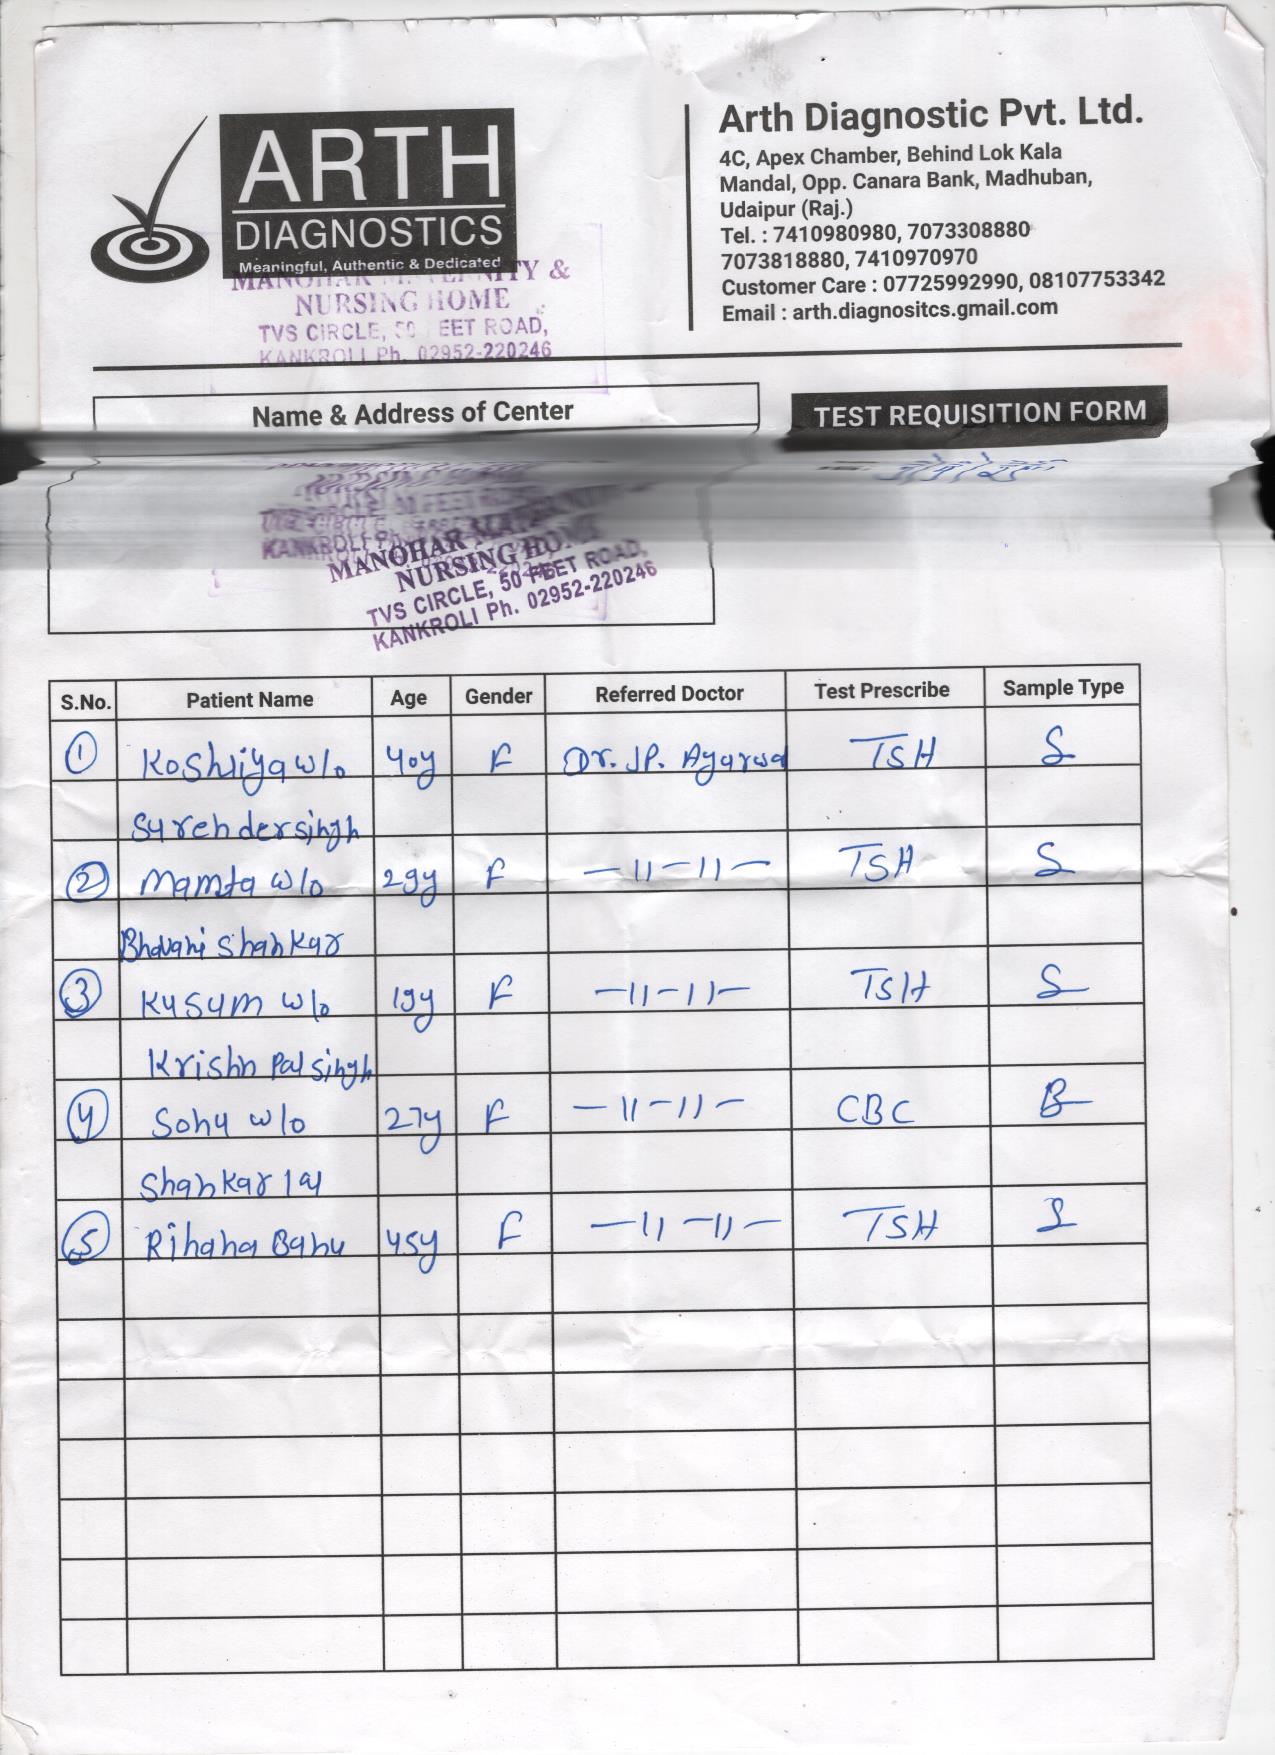 ARTH
DIAGNOSTICS
Meaningful, Authentic & Dedicated
Arth Diagnostic Pvt. Ltd.
4C, Apex Chamber, Behind Lok Kala
Mandal, Opp. Canara Bank, Madhuban,
Udaipur (Raj.)
Tel. : 7410980980, 7073308880
7073818880, 7410970970
Customer Care : 07725992990, 08107753342
Email : arth.diagnositcs.gmail.com
NURSING HOME
TVS CIRCLE, 50 FEET ROAD,
KANKROLI Ph. 02952-220246
Name & Address of Center
TEST REQUISITION FORM
MANOHAR
NURSING HOME
TVS CIRCLE, 50 FEET ROAD,
KANKROLI Ph. 02952-220246
S.No. Patient Name Age Gender Referred Doctor Test Prescribe Sample Type
1 Koshliya w/o 40y F Dr. JP. Agarwal TSH S
Surendersingh
2 Mamta w/o 29y F -11-11- TSH S
Bhavani Shankar
3 Kusum w/o 19y F -11-11- TSH S
Krishn Pal singh
4 Sonu w/o 27y F -11-11- CBC B
Shankar lal
5 Rihana Banu 45y F -11-11- TSH S